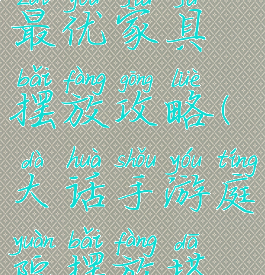 zuì yōu jiā jù
最优家具
bǎi fàng gōng lüè
摆放攻略(
dà huà shǒu yóu tíng
大话手游庭
yuàn bǎi fàng dā
院摆放搭